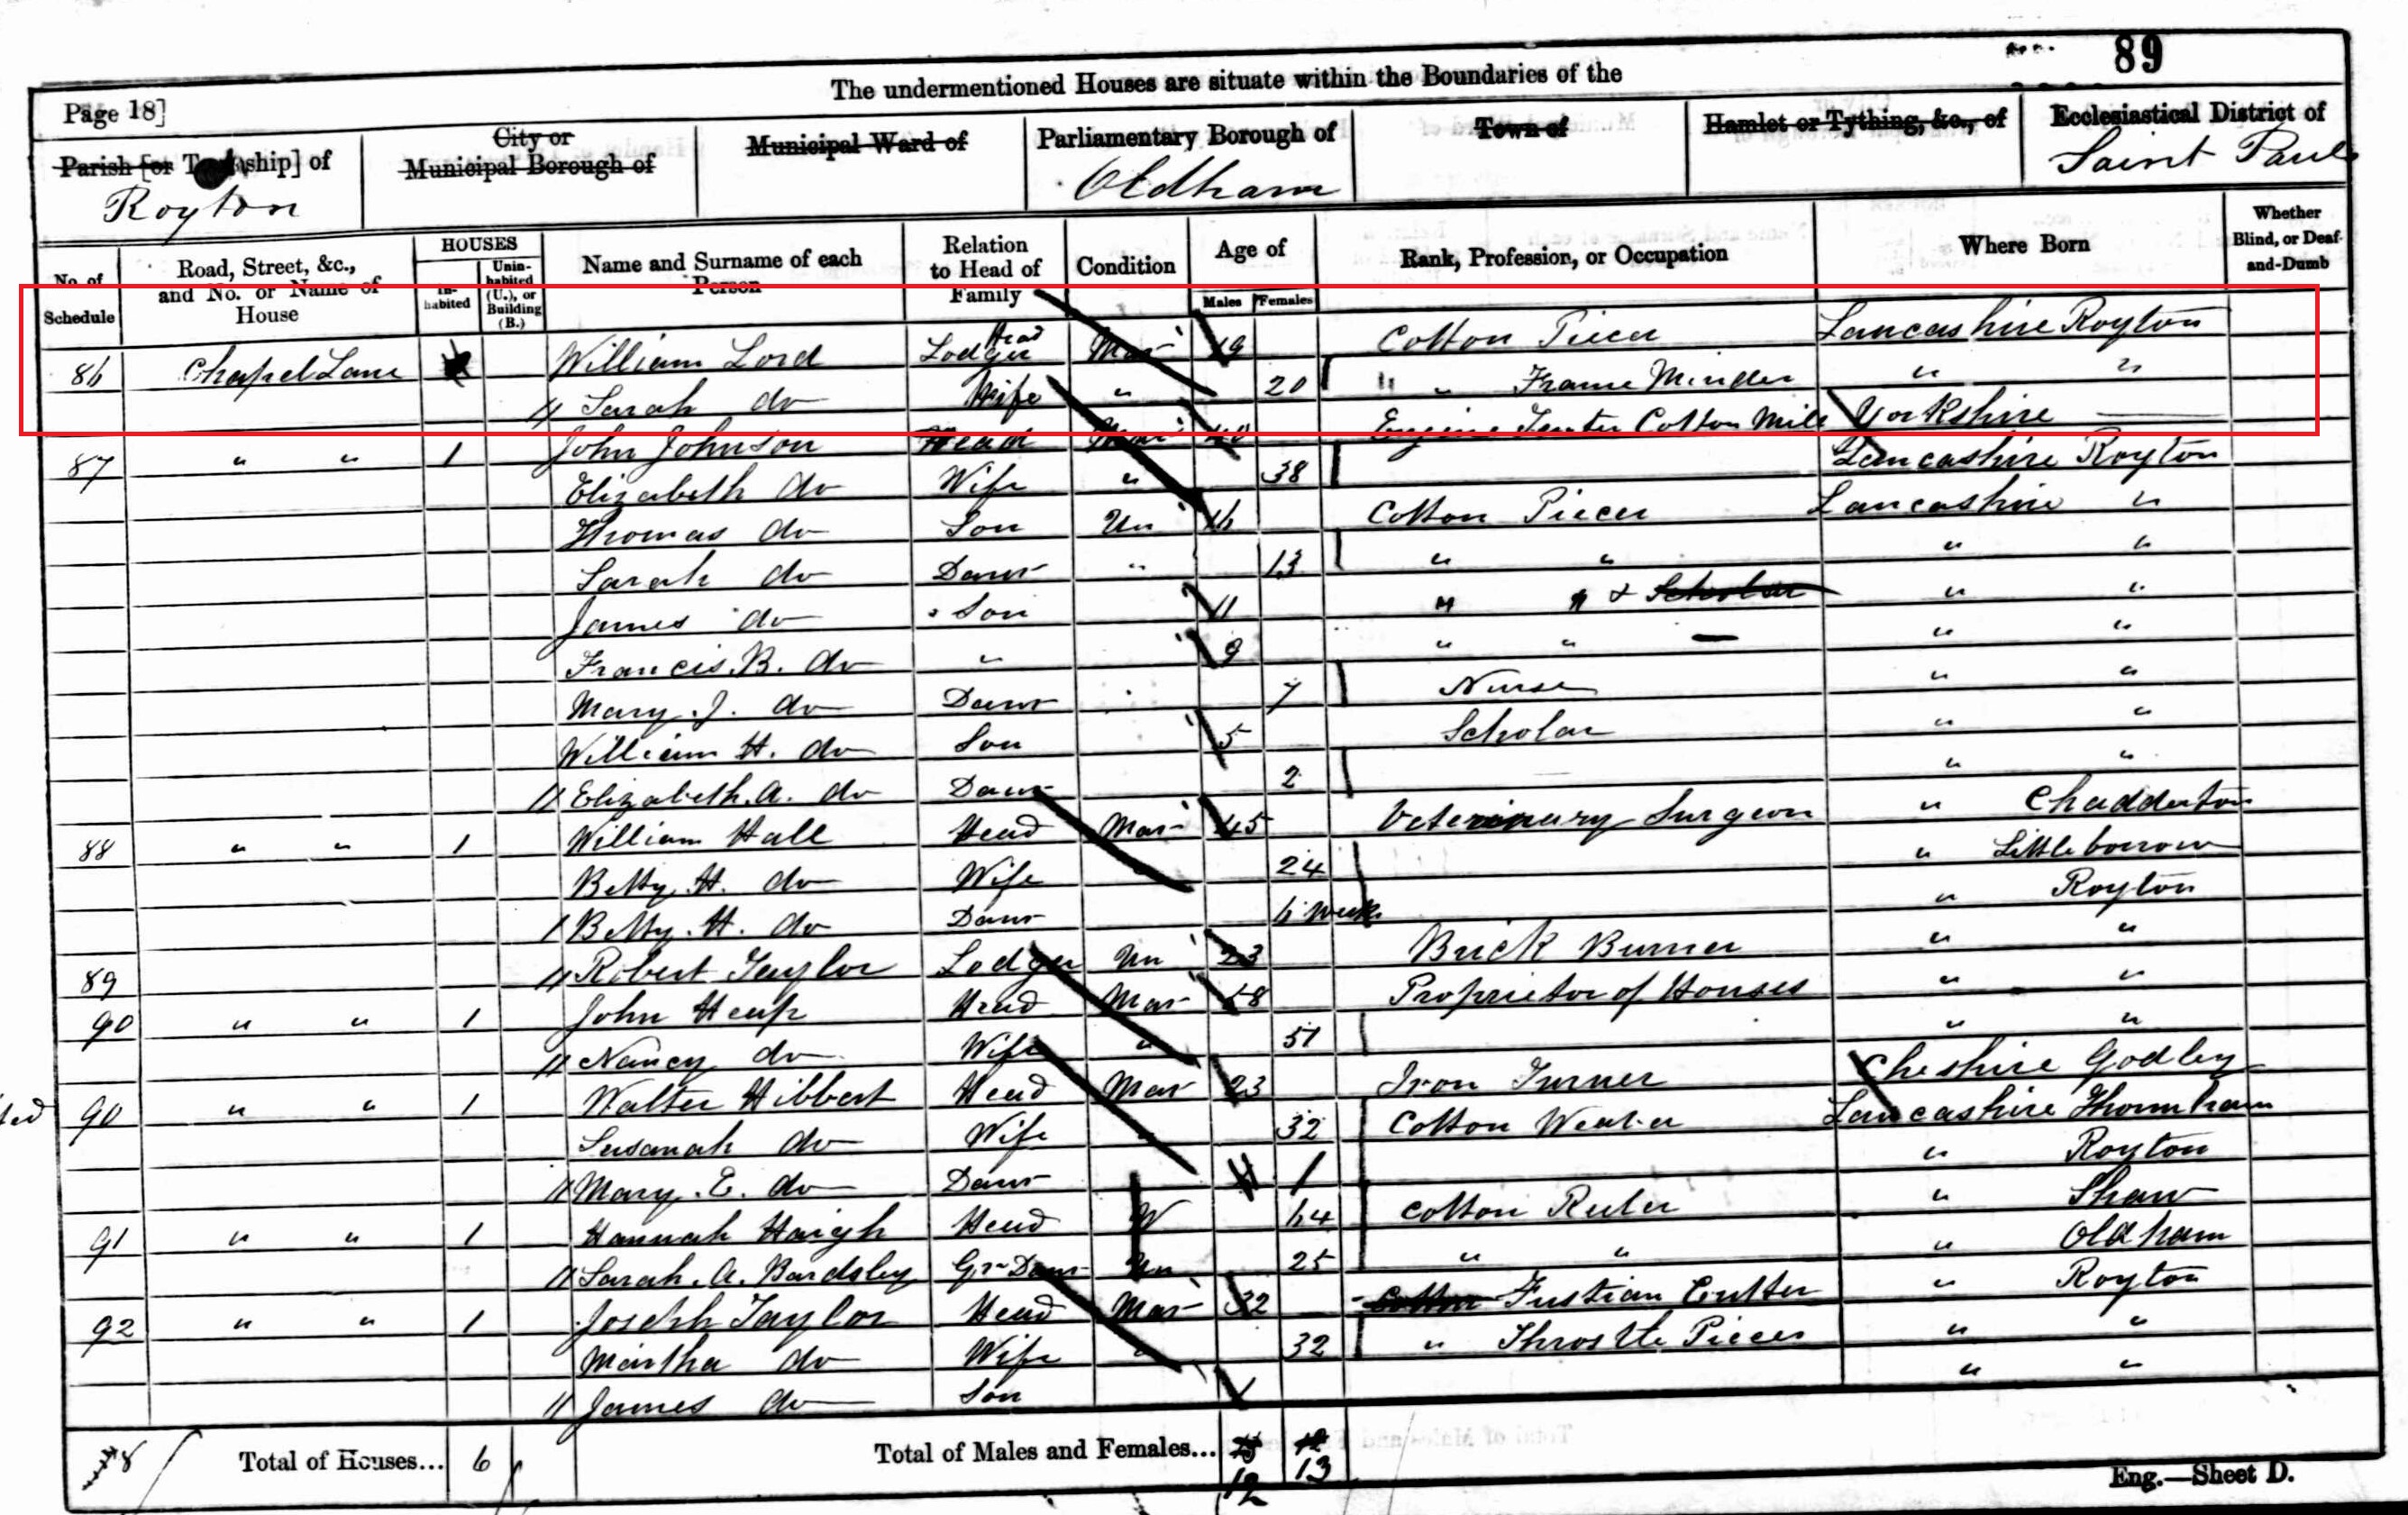 89
The undermentioned Houses are situate within the Boundaries of the
Page 18]
Parish [or Township] of
Royton
City or
Municipal Borough of
Municipal Ward of
Parliamentary Borough of
Oldham
Town of
Hamlet or Tything, &c., of
Ecclesiastical District of
Saint Pauls
No. of Schedule
Road, Street, &c., and No. or Name of House
HOUSES
In-habited
Unin-habited (U.), or Building (B.)
Name and Surname of each Person
Relation to Head of Family
Condition
Age of
Males Females
Rank, Profession, or Occupation
Where Born
Whether Blind, or Deaf-and-Dumb
86 Chapel Lane William Lord Lodger Head Mar 19 Cotton Piecer Lancashire Royton
" Sarah do Wife " 20 " " Frame Minder " "
87 " " 1 John Johnson Head Mar 40 Engine Tenter Cotton Mill Yorkshire —
Elizabeth do Wife " 38 Lancashire Royton
Thomas do Son Un 16 Cotton Piecer Lancashire "
Sarah do Daur " 13 " " " "
James do Son 11 " " & Scholar " "
Francis B. do " 9 " " — " "
Mary J. do Daur 7 Nurse " "
William H. do Son 5 Scholar " "
Elizabeth A. do Daur 2 " "
88 " " 1 William Hall Head Mar 45 Veterinary Surgeon " Chadderton
Betty H. do Wife " 24 " Littleborrow
Betty H. do Daur 6 weeks " Royton
89 Robert Taylor Lodger Un 23 Brick Burner " "
90 " " 1 John Heap Head Mar 58 Proprietor of Houses " "
Nancy do Wife " 51 " "
90 " " 1 Walter Hibbert Head Mar 23 Iron Turner Cheshire Godley
Susanah do Wife " 32 Cotton Weaver Lancashire Thornham
Mary E. do Daur 1 " Royton
91 " " 1 Hannah Haigh Head W 64 Cotton Reeler " Shaw
Sarah A. Bardsley Gr Daur Un 25 " " " Oldham
92 " " 1 Joseph Taylor Head Mar 32 Cotton Fustian Cutter " Royton
Martha do Wife " 32 " Throstle Piecer " "
James do Son 1 " "
Total of Houses... 6
Total of Males and Females... 12 13
Eng.—Sheet D.